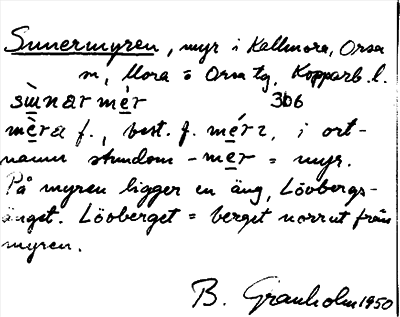 Sunnermyren, myr i Kallmora, Orsa
sn, Mora o Orsa tg, Kopparb. l.
306
mèra f., best. f. mérɩ, i ort-
namn stundom -mer = myr.
På myren ligger en äng, Lövbergs-
änget. Lövberget = berget norrut från
myren.
B. Granholm 1950